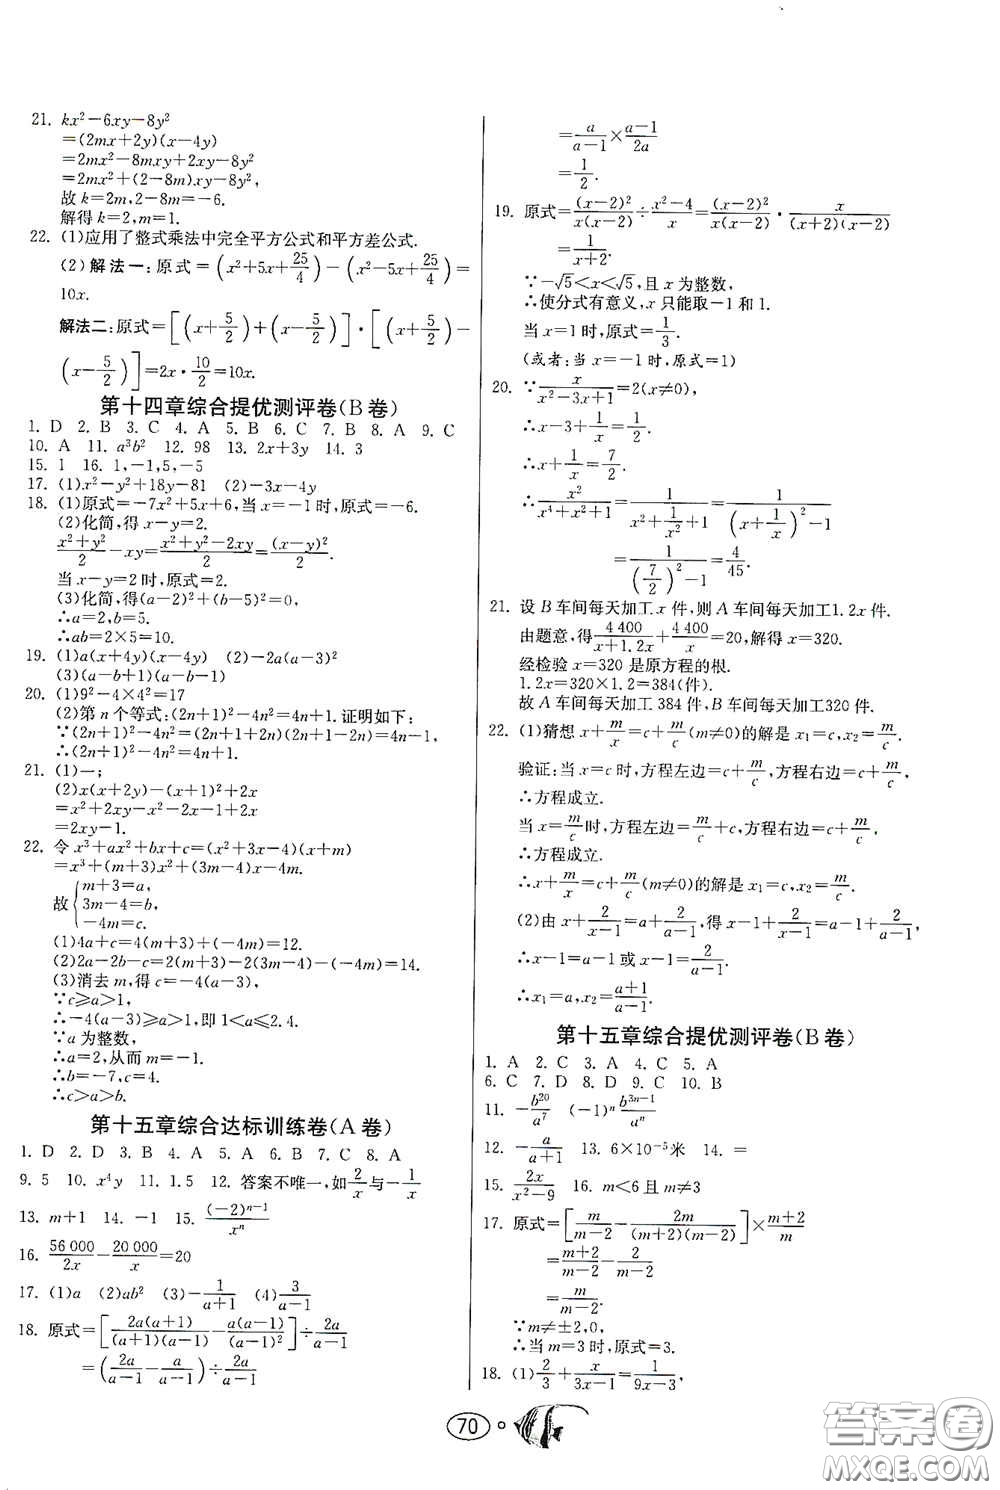 21. kx²－6xy－8y²
＝(2mx＋2y)(x－4y)
＝2mx²－8mxy＋2xy－8y²
＝2mx²＋(2－8m)xy－8y²,
故 k＝2m,2－8m＝－6.
解得 k＝2,m＝1.
22. (1)应用了整式乘法中完全平方公式和平方差公式.
(2)解法一:原式＝(x²＋5x＋25/4)－(x²－5x＋25/4)＝
10x.
解法二:原式＝[(x＋5/2)＋(x－5/2)]·[(x＋5/2)－
(x－5/2)]＝2x·10/2＝10x.
第十四章综合提优测评卷(B卷)
1. D 2. B 3. C 4. A 5. B 6. C 7. B 8. A 9. C
10. A 11. a³b² 12. 98 13. 2x＋3y 14. 3
15. 1 16. 1,－1,5,－5
17. (1)x²－y²＋18y－81 (2)－3x－4y
18. (1)原式＝－7x²＋5x＋6,当 x＝－1时,原式＝－6.
(2)化简,得 x－y＝2.
(x²＋y²)/2－xy＝(x²＋y²－2xy)/2＝(x－y)²/2.
当 x－y＝2时,原式＝2.
(3)化简,得(a－2)²＋(b－5)²＝0,
∴a＝2,b＝5.
∴ab＝2×5＝10.
19. (1)a(x＋4y)(x－4y) (2)－2a(a－3)²
(3)(a－b＋1)(a－b－1)
20. (1)9²－4×4²＝17
(2)第 n 个等式:(2n＋1)²－4n²＝4n＋1.证明如下:
∵(2n＋1)²－4n²＝(2n＋1＋2n)(2n＋1－2n)＝4n＋1,
∴(2n＋1)²－4n²＝4n＋1.
21. (1)一;
(2)x(x＋2y)－(x＋1)²＋2x
＝x²＋2xy－x²－2x－1＋2x
＝2xy－1.
22. 令 x³＋ax²＋bx＋c＝(x²＋3x－4)(x＋m)
＝x³＋(m＋3)x²＋(3m－4)x－4m.
故{m＋3＝a,
3m－4＝b,
－4m＝c.
(1)4a＋c＝4(m＋3)＋(－4m)＝12.
(2)2a－2b－c＝2(m＋3)－2(3m－4)－(－4m)＝14.
(3)消去 m,得 c＝－4(a－3),
∵c≥a＞1,
∴－4(a－3)≥a＞1,即 1＜a≤2.4.
∵a 为整数,
∴a＝2,从而 m＝－1.
∴b＝－7,c＝4.
∴c＞a＞b.
第十五章综合达标训练卷(A卷)
1. D 2. D 3. B 4. A 5. A 6. B 7. C 8. A
9. 5 10. x⁴y 11. 1.5 12. 答案不唯一,如2/x与－1/x
13. m＋1 14. －1 15. (－2)ⁿ⁻¹/xⁿ
16. 56 000/2x－20 000/x＝20
17. (1)a (2)ab² (3)－1/(a＋1) (4)3/(a－1)
18. 原式＝[2a(a＋1)/((a＋1)(a－1))－a(a－1)/(a－1)²]÷2a/(a－1)
＝(2a/(a－1)－a/(a－1))÷2a/(a－1)
＝a/(a－1)×(a－1)/2a
＝1/2.
19. 原式＝(x－2)²/(x(x－2))÷(x²－4)/x＝(x－2)²/(x(x－2))·x/((x＋2)(x－2))
＝1/(x＋2).
∵－√5＜x＜√5,且 x 为整数,
∴使分式有意义,x 只能取－1和1.
当 x＝1时,原式＝1/3.
(或者:当 x＝－1时,原式＝1)
20. ∵x/(x²－3x＋1)＝2(x≠0),
∴x－3＋1/x＝1/2,
∴x＋1/x＝7/2.
∴x²/(x⁴＋x²＋1)＝1/(x²＋1/x²＋1)＝1/((x＋1/x)²－1)
＝1/((7/2)²－1)＝4/45.
21. 设 B 车间每天加工 x 件,则 A 车间每天加工1.2x 件.
由题意,得4 400/(x＋1.2x)＋4 400/x＝20,解得 x＝320.
经检验 x＝320是原方程的根.
1.2x＝320×1.2＝384(件).
故 A 车间每天加工 384 件,B 车间每天加工320 件.
22. (1)猜想 x＋m/x＝c＋m/c(m≠0)的解是 x₁＝c,x₂＝m/c.
验证:当 x＝c 时,方程左边＝c＋m/c,方程右边＝c＋m/c,
∴方程成立.
当 x＝m/c时,方程左边＝m/c＋c,方程右边＝c＋m/c,
∴方程成立.
∴x＋m/x＝c＋m/c(m≠0)的解是 x₁＝c,x₂＝m/c.
(2)由 x＋2/(x－1)＝a＋2/(a－1),得 x－1＋2/(x－1)＝a－1＋2/(a－1),
∴x－1＝a－1或 x－1＝2/(a－1).
∴x₁＝a,x₂＝(a＋1)/(a－1).
第十五章综合提优测评卷(B卷)
1. A 2. C 3. A 4. C 5. A
6. C 7. D 8. D 9. C 10. B
11. －b²⁰/a⁷ (－1)ⁿb³ⁿ⁻¹/aⁿ
12. －a/(a＋1) 13. 6×10⁻⁵米 14. ＝
15. 2x/(x²－9) 16. m＜6且 m≠3
17. 原式＝[m/(m－2)－2m/((m＋2)(m－2))]×(m＋2)/m
＝(m＋2)/(m－2)－2/(m－2)
＝m/(m－2).
∵m≠±2,0,
∴当 m＝3时,原式＝3.
18. (1)2/3＋x/(3x－1)＝1/(9x－3),
70
答案卷
MXQE.COM